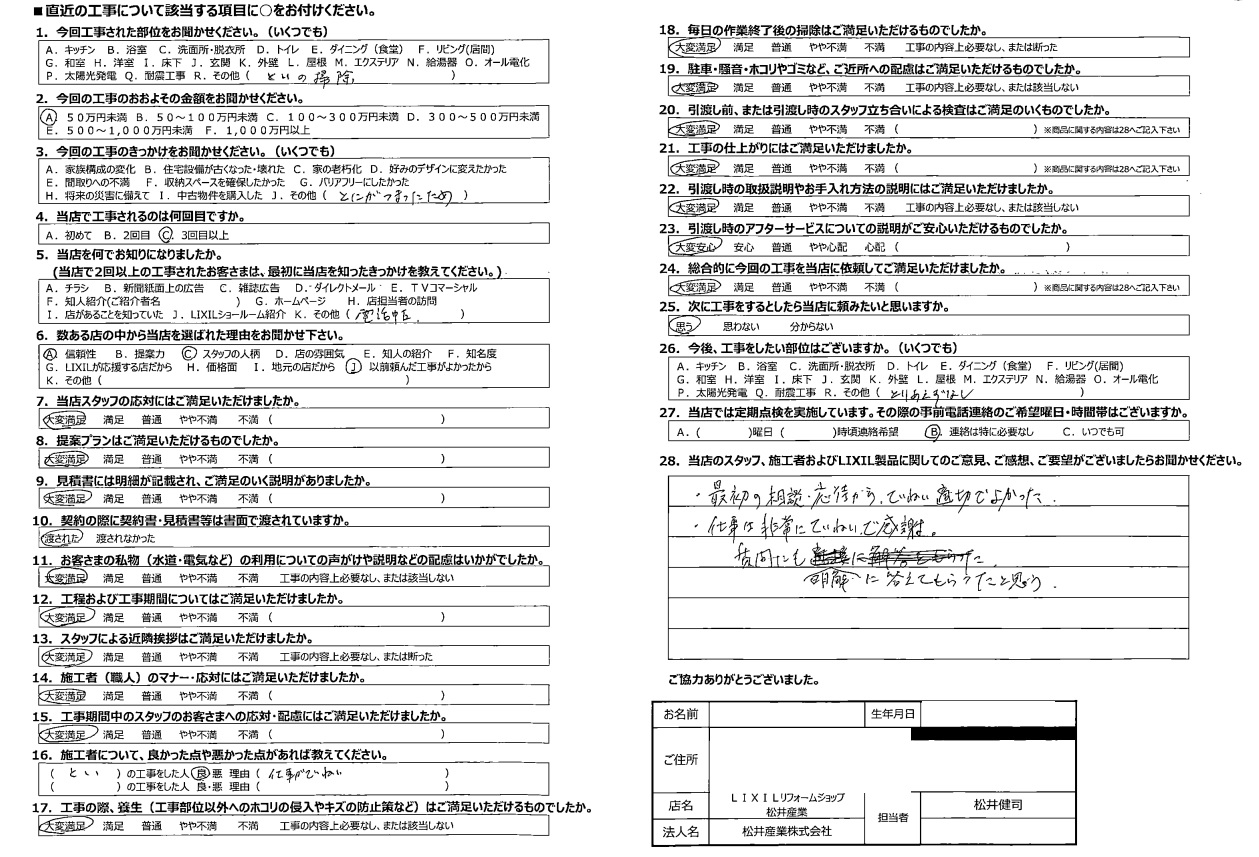 ■直近の工事について該当する項目に○をお付けください。
1．今回工事された部位をお聞かせください。（いくつでも）
A．キッチン B．浴室 C．洗面所・脱衣所 D．トイレ E．ダイニング（食堂） F．リビング(居間)
G．和室 H．洋室 I．床下 J．玄関 K．外壁 L．屋根 M．エクステリア N．給湯器 O．オール電化
P．太陽光発電 Q．耐震工事 R．その他（ といの掃除 ）
2．今回の工事のおおよその金額をお聞かせください。
A 50万円未満 B．50～100万円未満 C．100～300万円未満 D．300～500万円未満
E．500～1,000万円未満 F．1,000万円以上
3．今回の工事のきっかけをお聞かせください。（いくつでも）
A．家族構成の変化 B．住宅設備が古くなった・壊れた C．家の老朽化 D．好みのデザインに変えたかった
E．間取りへの不満 F．収納スペースを確保したかった G．バリアフリーにしたかった
H．将来の災害に備えて I．中古物件を購入した J．その他（ といがつまったため ）
4．当店で工事されるのは何回目ですか。
A．初めて B．2回目 C．3回目以上
5．当店を何でお知りになりましたか。
（当店で2回以上の工事されたお客さまは、最初に当店を知ったきっかけを教えてください。）
A．チラシ B．新聞紙面上の広告 C．雑誌広告 D．ダイレクトメール E．TVコマーシャル
F．知人紹介(ご紹介者名 ) G．ホームページ H．店担当者の訪問
I．店があることを知っていた J．LIXILショールーム紹介 K．その他（ ）
6．数ある店の中から当店を選ばれた理由をお聞かせ下さい。
A 信頼性 B．提案力 C スタッフの人柄 D．店の雰囲気 E．知人の紹介 F．知名度
G．LIXILが応援する店だから H．価格面 I．地元の店だから J 以前頼んだ工事がよかったから
K．その他（ ）
7．当店スタッフの応対にはご満足いただけましたか。
大変満足 満足 普通 やや不満 不満（ ）
8．提案プランはご満足いただけるものでしたか。
大変満足 満足 普通 やや不満 不満（ ）
9．見積書には明細が記載され、ご満足のいく説明がありましたか。
大変満足 満足 普通 やや不満 不満（ ）
10．契約の際に契約書・見積書等は書面で渡されていますか。
渡された 渡されなかった
11．お客さまの私物（水道・電気など）の利用についての声がけや説明などの配慮はいかがでしたか。
大変満足 満足 普通 やや不満 不満 工事の内容上必要なし、または該当しない
12．工程および工事期間についてはご満足いただけましたか。
大変満足 満足 普通 やや不満 不満（ ）
13．スタッフによる近隣挨拶はご満足いただけましたか。
大変満足 満足 普通 やや不満 不満 工事の内容上必要なし、または断った
14．施工者（職人）のマナー・応対にはご満足いただけましたか。
大変満足 満足 普通 やや不満 不満（ ）
15．工事期間中のスタッフのお客さまへの応対・配慮にはご満足いただけましたか。
大変満足 満足 普通 やや不満 不満（ ）
16．施工者について、良かった点や悪かった点があれば教えてください。
（ とい ）の工事をした人 良・悪 理由（ 仕事がていねい ）
（ ）の工事をした人 良・悪 理由（ ）
17．工事の際、養生（工事部位以外へのホコリの侵入やキズの防止策など）はご満足いただけるものでしたか。
大変満足 満足 普通 やや不満 不満 工事の内容上必要なし、または該当しない
18．毎日の作業終了後の掃除はご満足いただけるものでしたか。
大変満足 満足 普通 やや不満 不満 工事の内容上必要なし、または断った
19．駐車・騒音・ホコリやゴミなど、ご近所への配慮はご満足いただけるものでしたか。
大変満足 満足 普通 やや不満 不満 工事の内容上必要なし、または該当しない
20．引渡し前、または引渡し時のスタッフ立ち合いによる検査はご満足のいくものでしたか。
大変満足 満足 普通 やや不満 不満（ ）※商品に関する内容は28へご記入下さい
21．工事の仕上がりにはご満足いただけましたか。
大変満足 満足 普通 やや不満 不満（ ）※商品に関する内容は28へご記入下さい
22．引渡し時の取扱説明やお手入れ方法の説明にはご満足いただけましたか。
大変満足 満足 普通 やや不満 不満 工事の内容上必要なし、または該当しない
23．引渡し時のアフターサービスについての説明がご安心いただけるものでしたか。
大変安心 安心 普通 やや心配 心配（ ）
24．総合的に今回の工事を当店に依頼してご満足いただけましたか。
大変満足 満足 普通 やや不満 不満（ ）※商品に関する内容は28へご記入下さい
25．次に工事をするとしたら当店に頼みたいと思いますか。
思う 思わない 分からない
26．今後、工事をしたい部位はございますか。（いくつでも）
A．キッチン B．浴室 C．洗面所・脱衣所 D．トイレ E．ダイニング（食堂） F．リビング(居間)
G．和室 H．洋室 I．床下 J．玄関 K．外壁 L．屋根 M．エクステリア N．給湯器 O．オール電化
P．太陽光発電 Q．耐震工事 R．その他（ とりあえずなし ）
27．当店では定期点検を実施しています。その際の事前電話連絡のご希望曜日・時間帯はございますか。
A．（ ）曜日（ ）時頃連絡希望 B．連絡は特に必要なし C．いつでも可
28．当店のスタッフ、施工者およびLIXIL製品に関してのご意見、ご感想、ご要望がございましたらお聞かせください。
・最初の相談・応待から、ていねい適切でよかった．
・仕事は非常にていねいで感謝。
質問にも
明解に答えてもらうたと思う．
ご協力ありがとうございました。
お名前 生年月日
ご住所
店名 LIXILリフォームショップ 松井産業 担当者 松井健司
法人名 松井産業株式会社